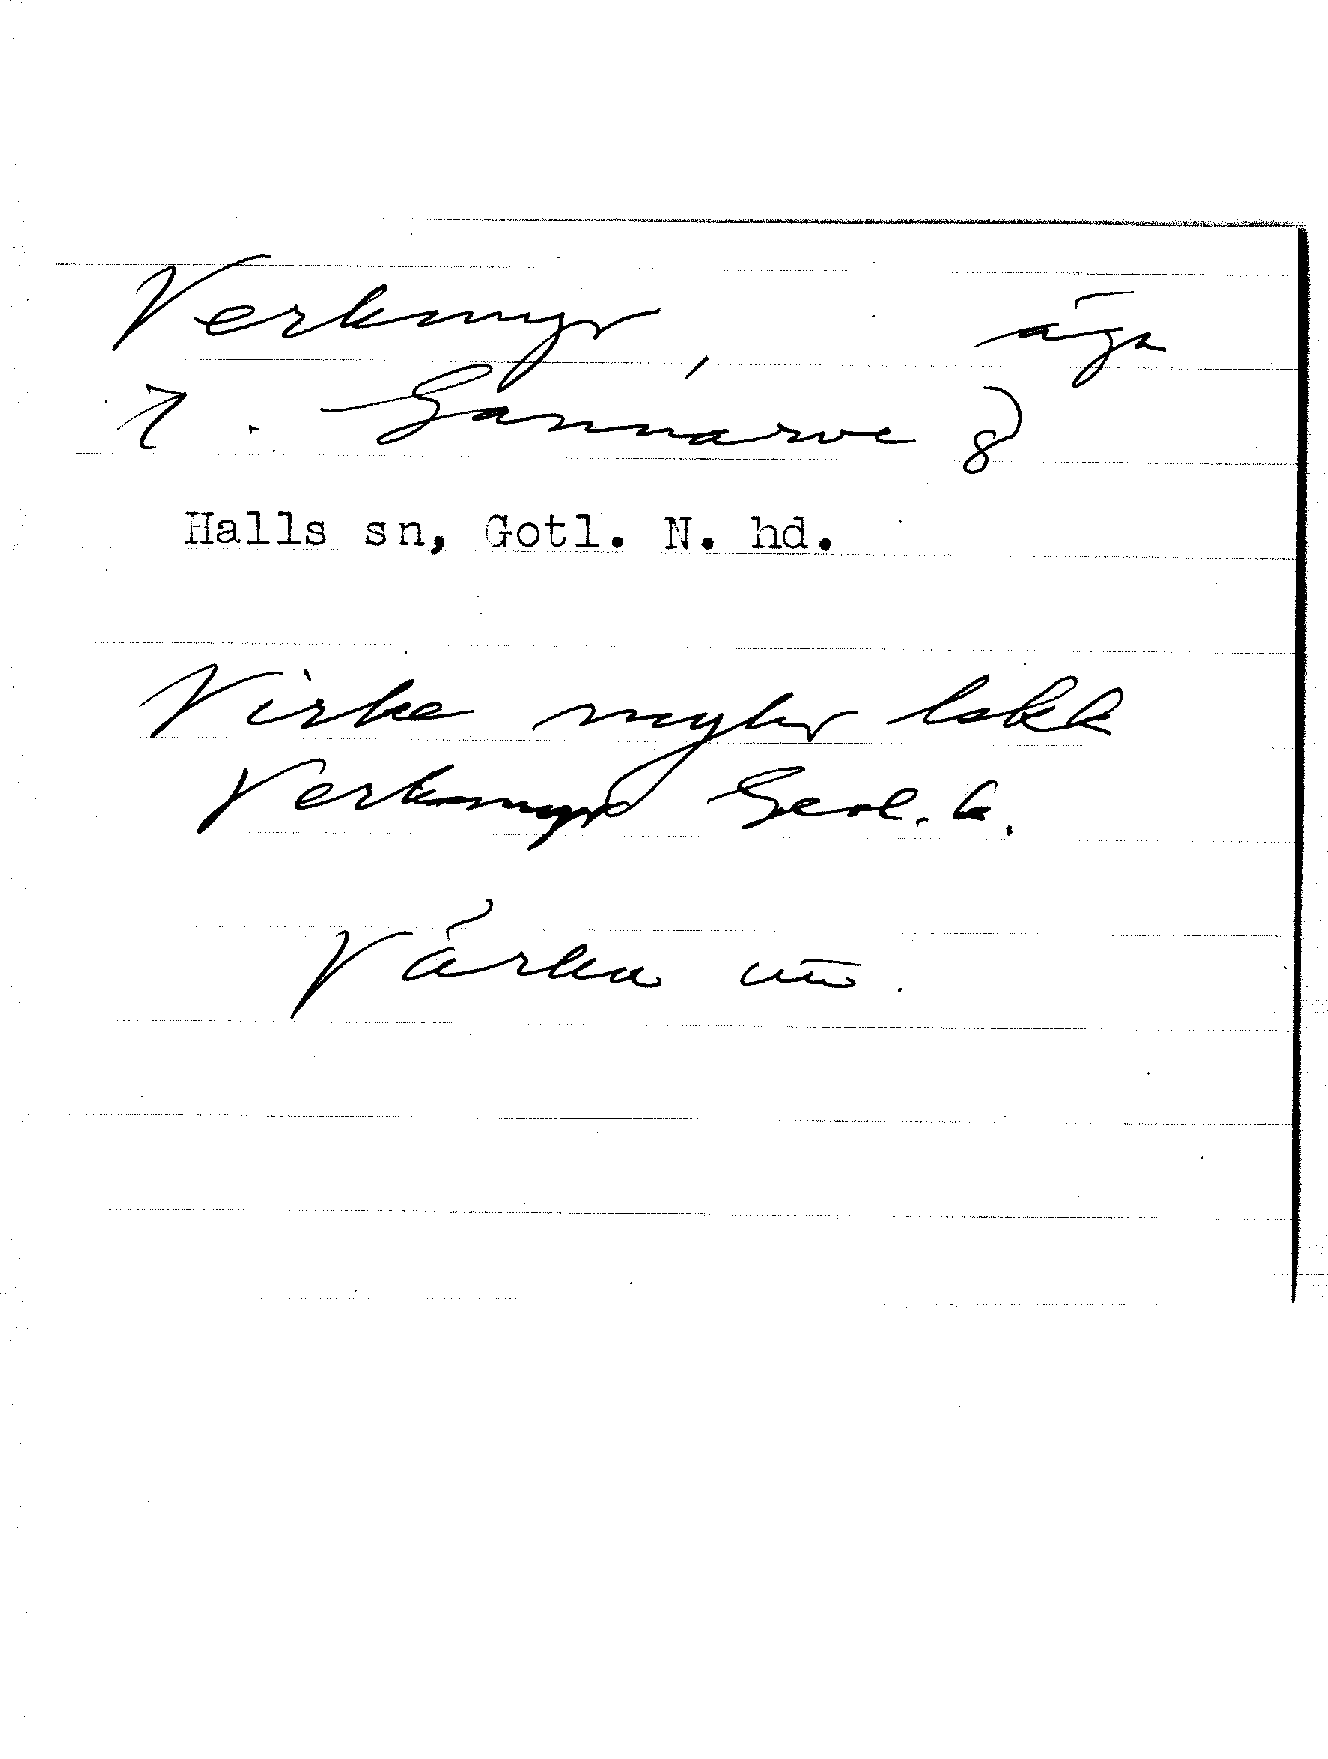 Verkmyr, äga
t. Gannarve 8
Halls sn, Gotl. N. hd.
Virke myhr lakk
Verkmyr Geol. k.
Värka